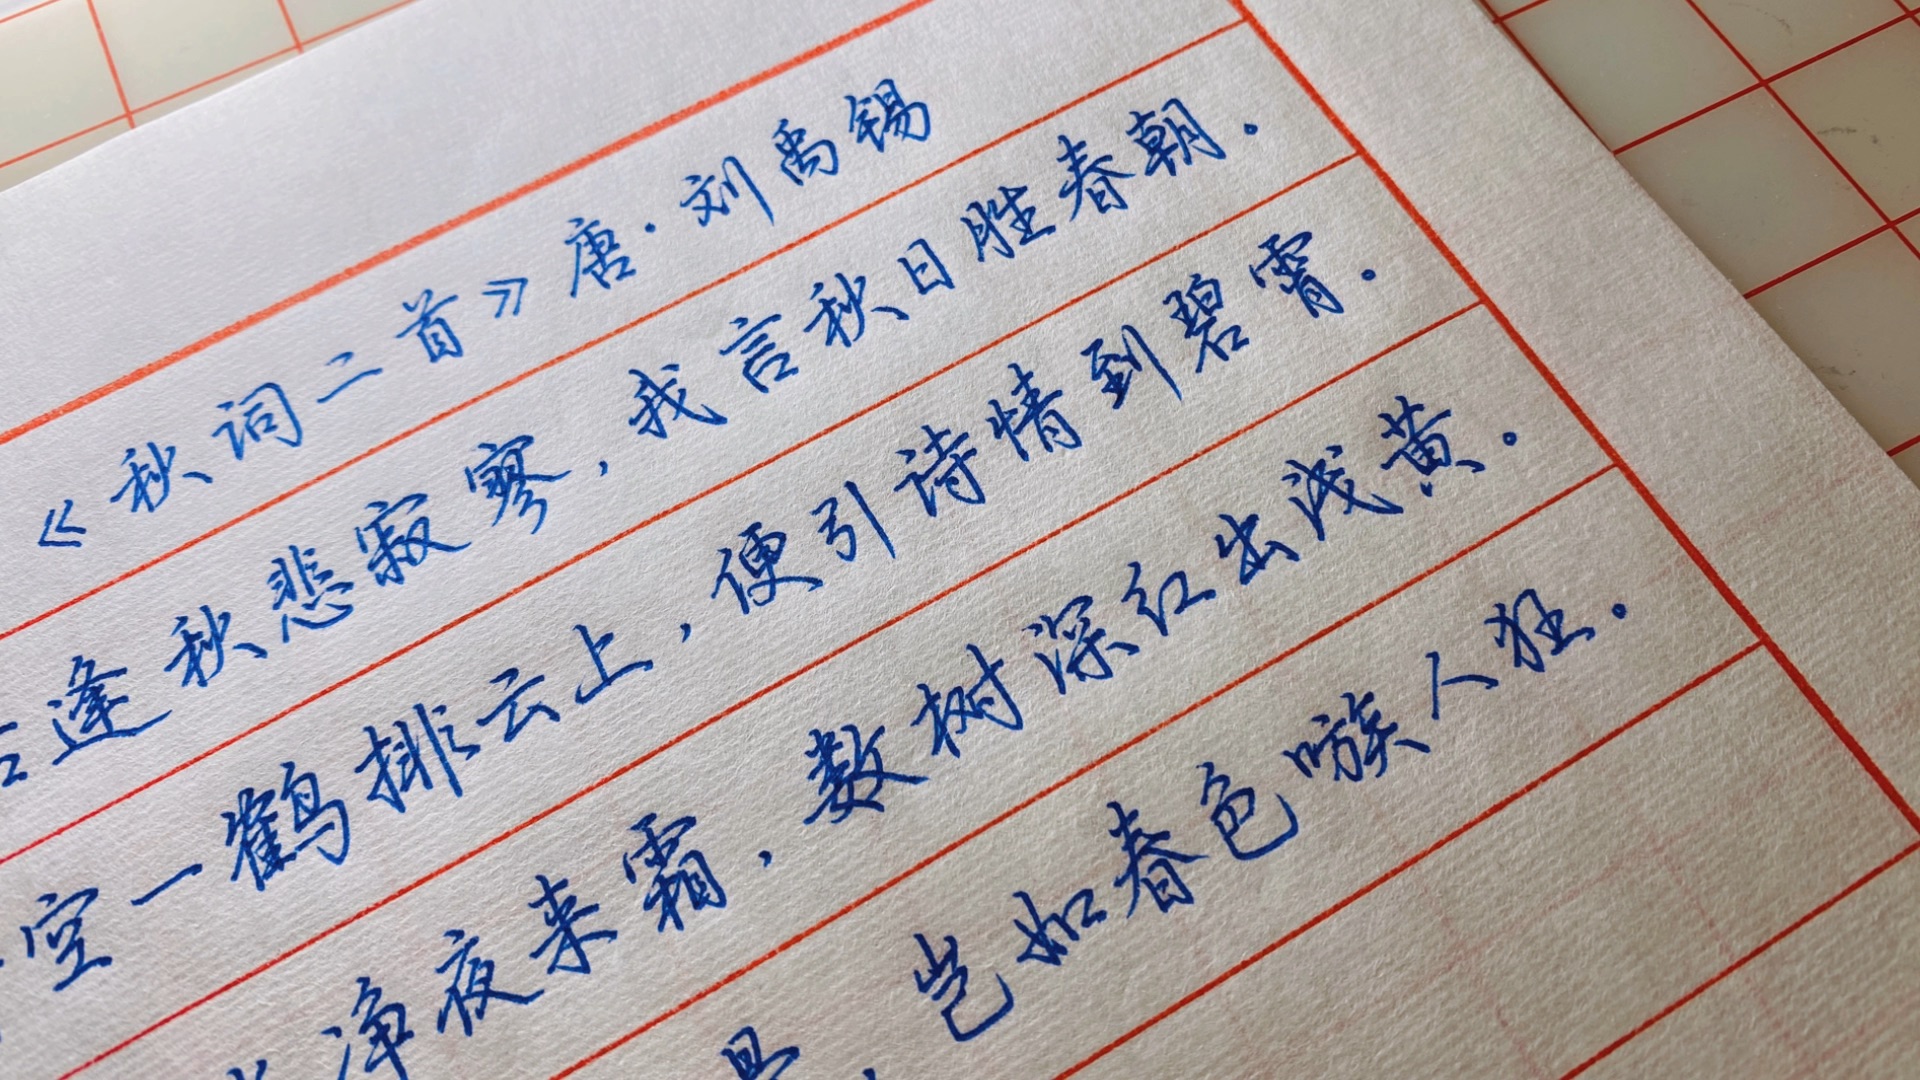 《秋词二首》唐·刘禹锡
逢秋悲寂寥，我言秋日胜春朝．
空一鹤排云上，便引诗情到碧霄．
净夜来霜，数树深红出浅黄．
，岂如春色嗾人狂．